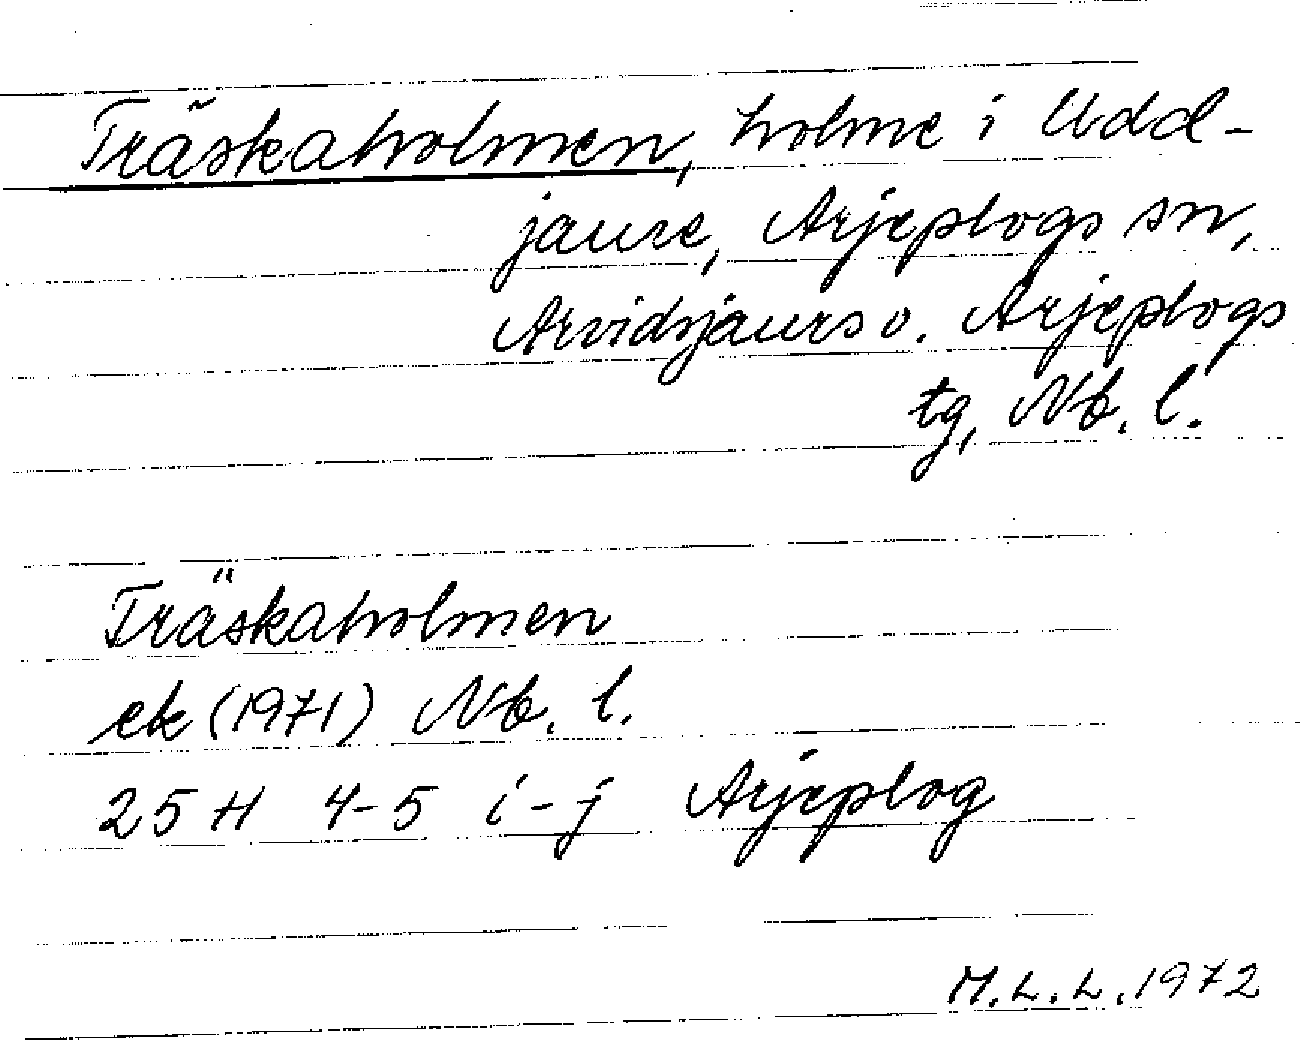 Träskaholmen, holme i Udd-
jaure, Arjeplogs sn,
Arvidsjaurs o. Arjeplogs
tg, Nb. l.
Träskaholmen
ek (1971) Nb. l.
25 H 4-5 i-j Arjeplog
M.L.L. 1972